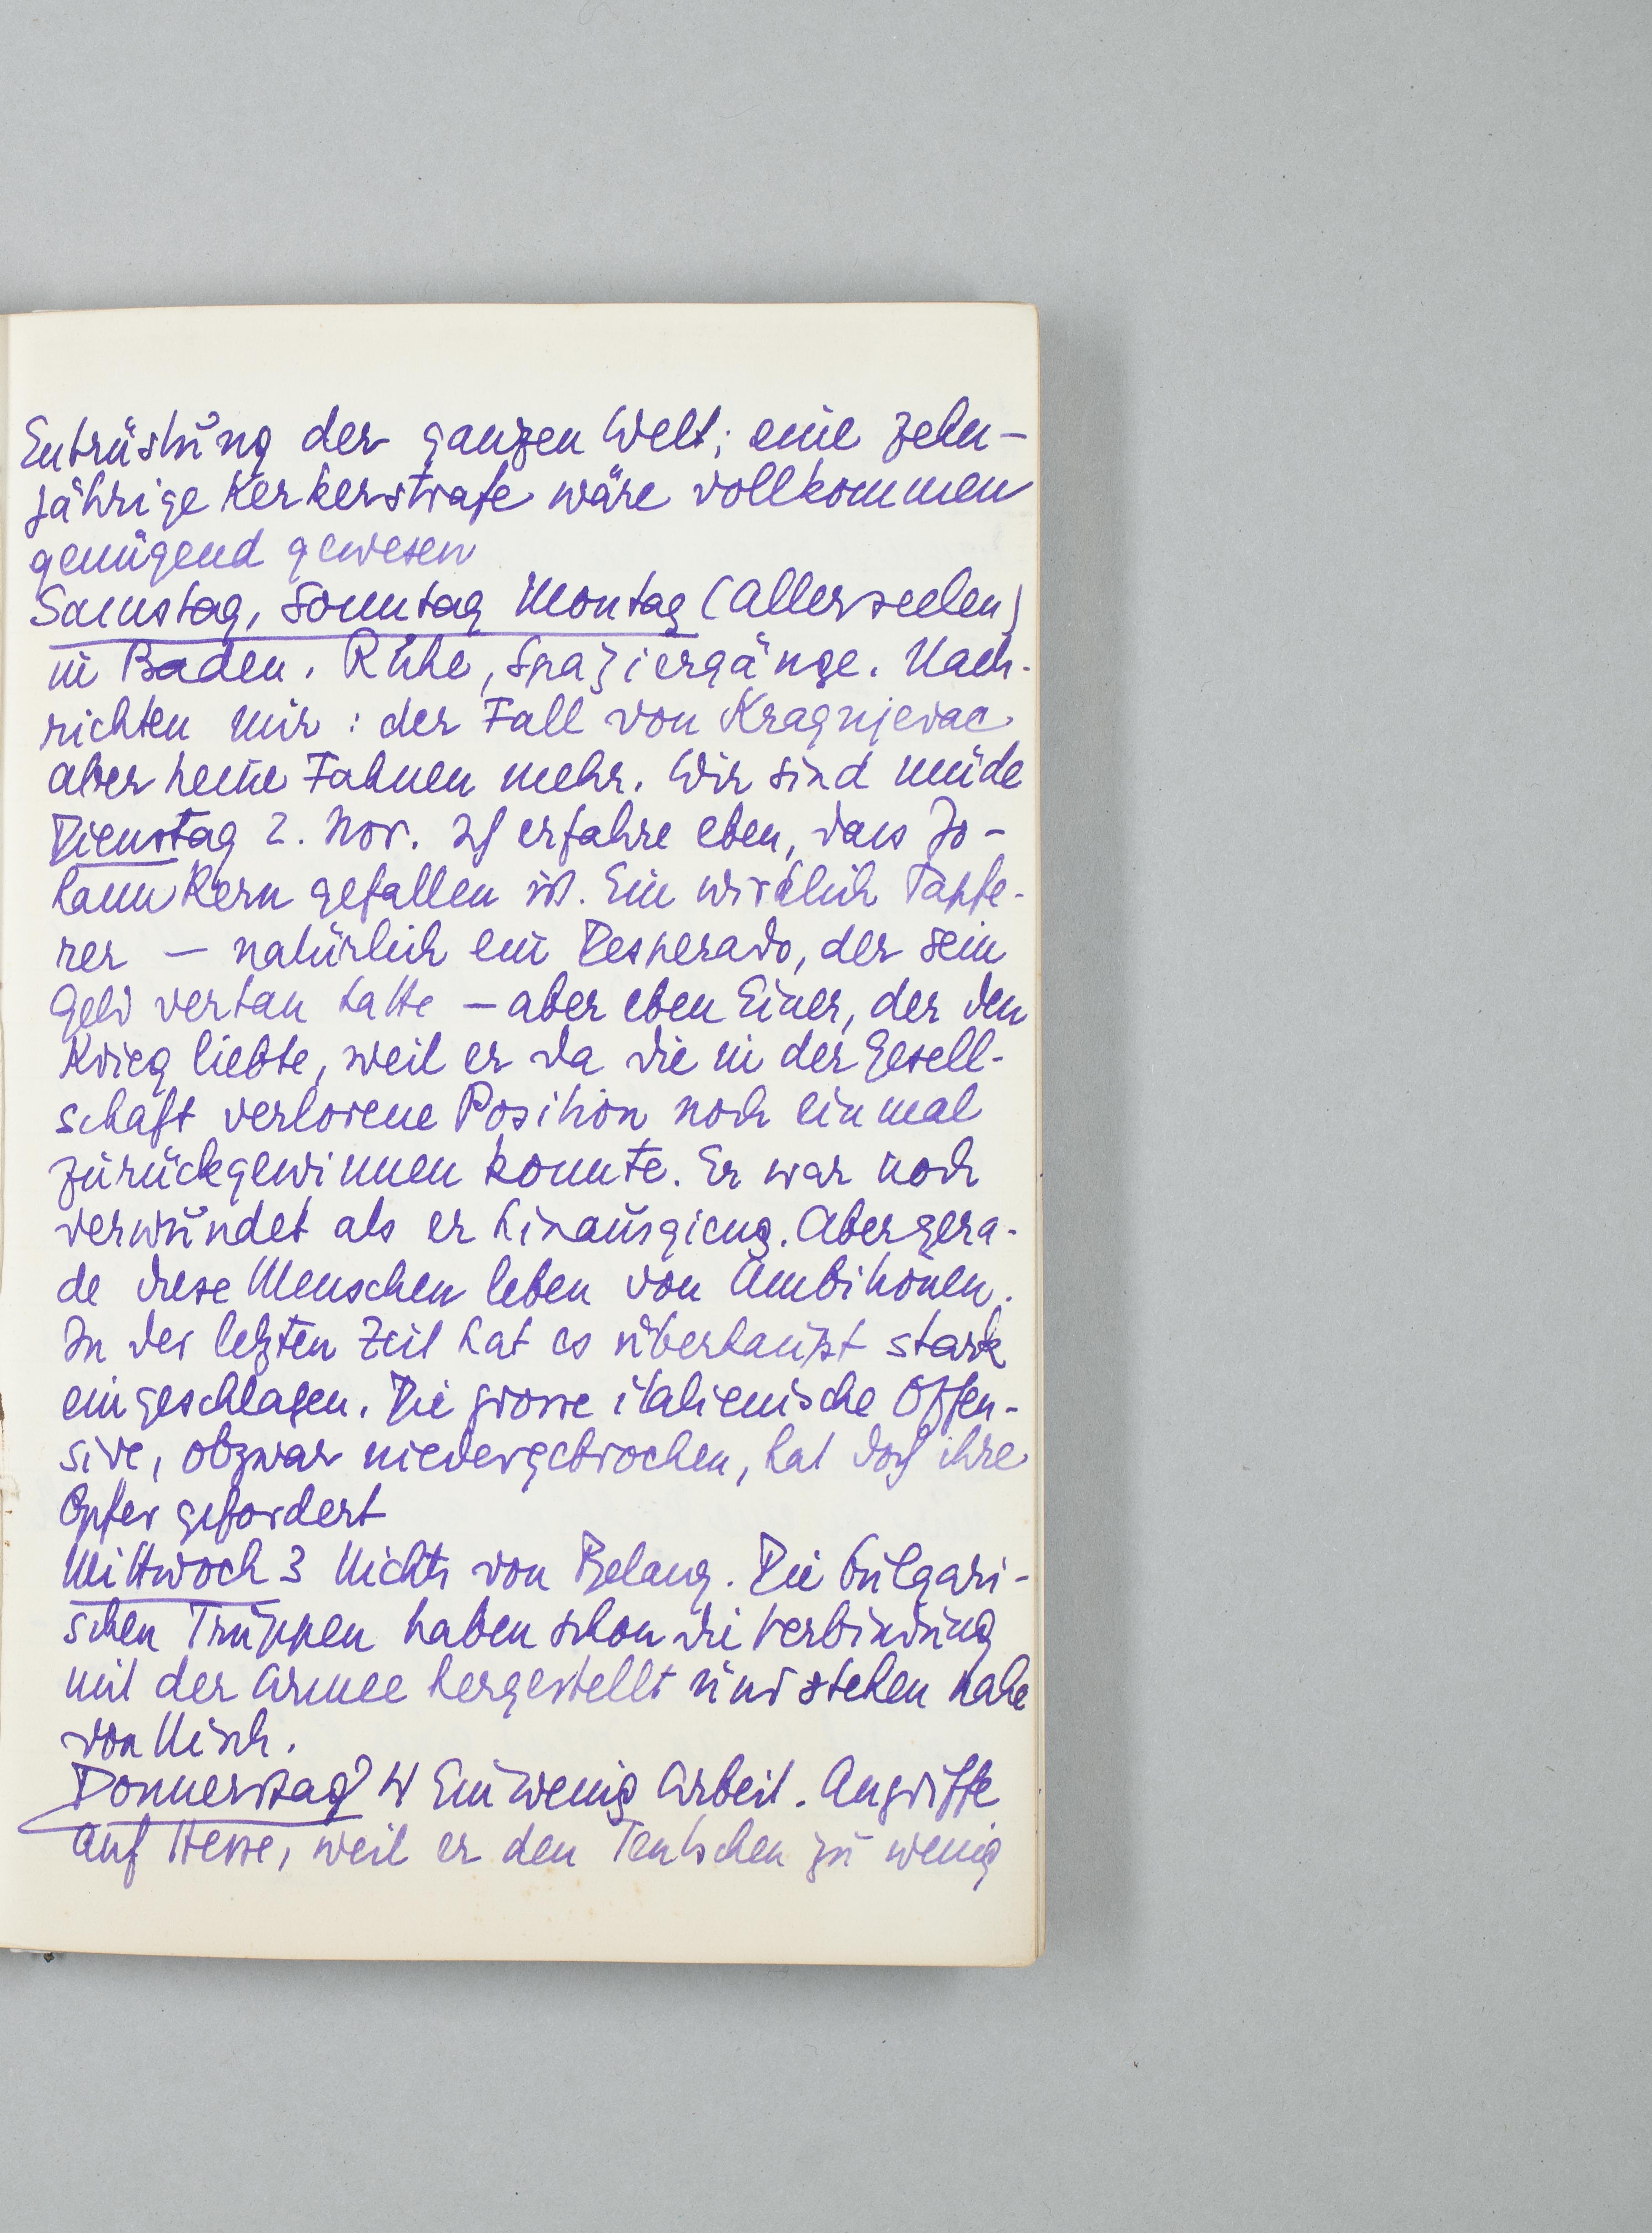 Entrüstung der ganzen Welt; eine zehn-
jährige Kerkerstrafe wäre vollkommen
genügend gewesen
Samstag, Sonntag Montag (Allerseelen)
in Baden. Ruhe, Spaziergänge. Nach-
richten nur: der Fall von Kragujevac
aber keine Fahnen mehr. Wir sind müde
Dienstag 2. Nov. Ich erfahre eben, dass Jo-
hann Kern gefallen ist. Ein wirklich Tapfe-
rer — natürlich ein Desperado, der sein
Geld vertan hatte — aber eben Einer, der den
Krieg liebte, weil er da die in der Gesell-
schaft verlorene Position noch einmal
zurückgewinnen konnte. Er war noch
verwundet als er hinausgieng. Aber gera-
de diese Menschen leben von Ambitionen.
In der letzten Zeit hat es überhaupt stark
eingeschlagen. Die grosse italienische Offen-
sive, obzwar niedergebrochen, hat doch ihre
Opfer gefordert
Mittwoch 3 Nichts von Belang. Die bulgari-
schen Truppen haben schon die Verbindung
mit der Armee hergestellt und stehen nahe
von Nisch.
Donnerstag 4 Ein wenig Arbeit. Angriffe
auf Hesse, weil er den Teutschen zu wenig